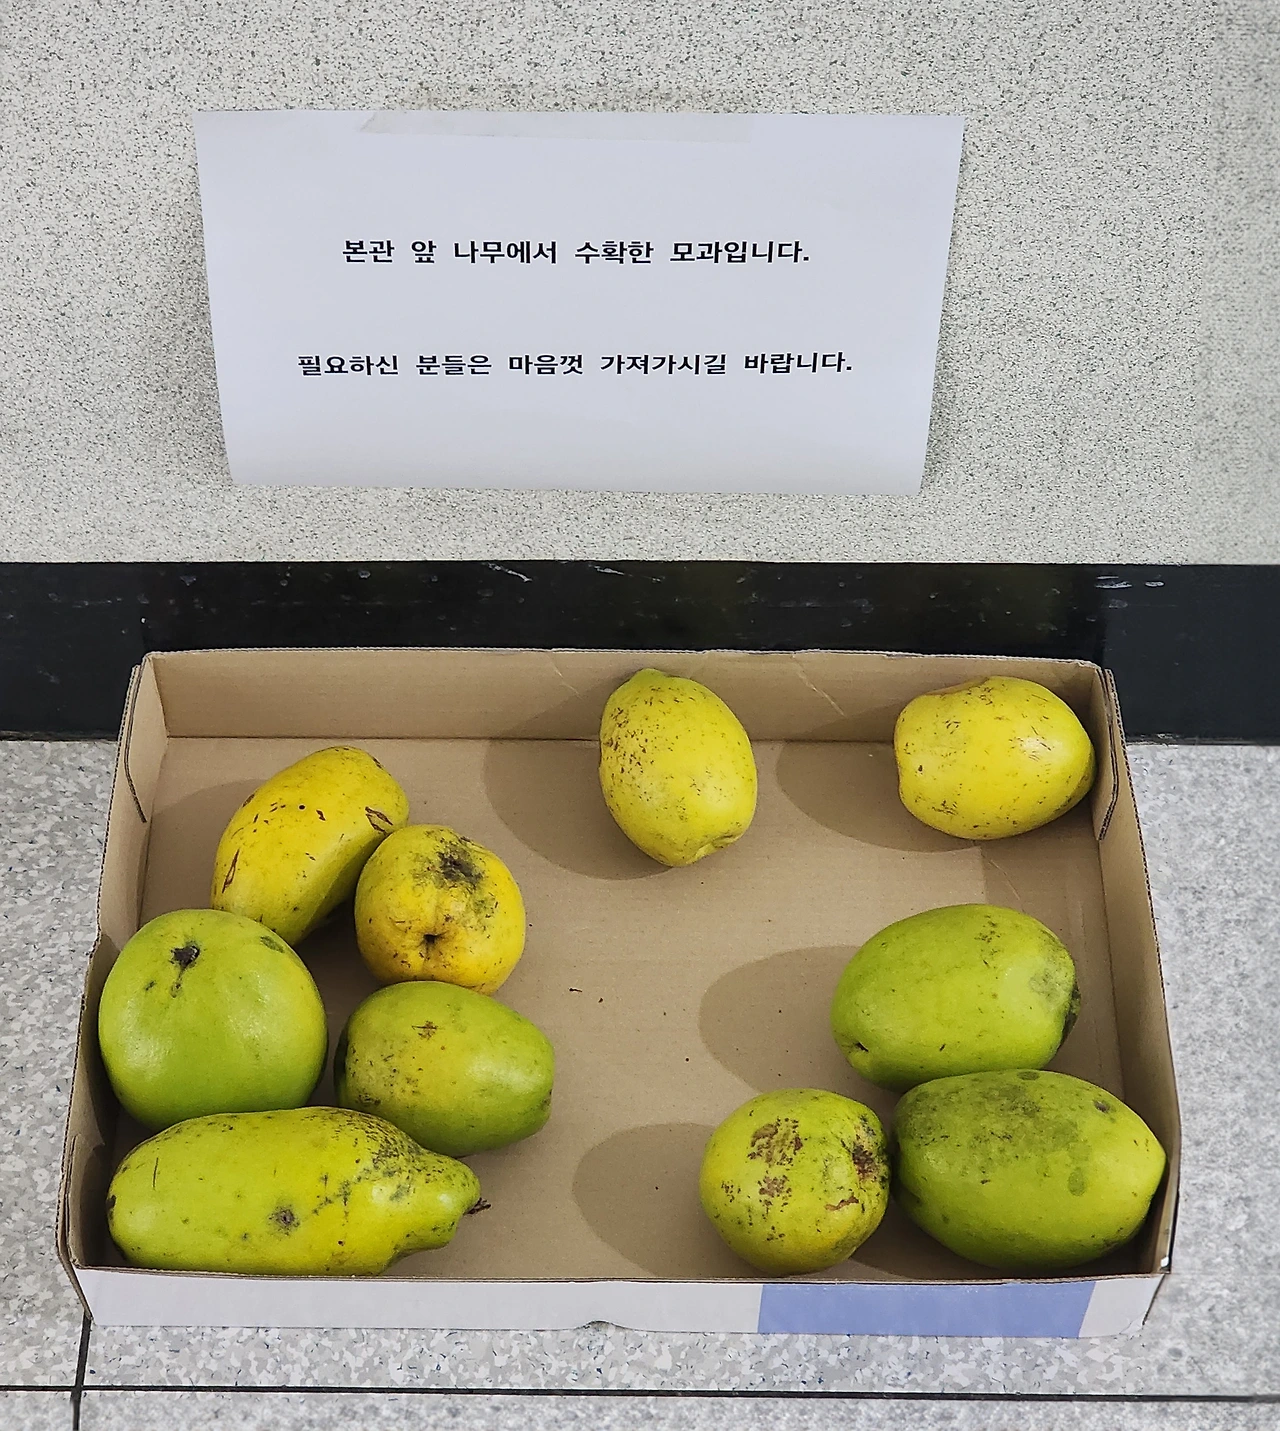 본관 앞 나무에서 수확한 모과입니다.
필요하신 분들은 마음껏 가져가시길 바랍니다.